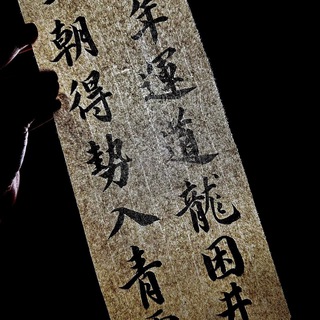 年運道龍困井
朝得勢入青